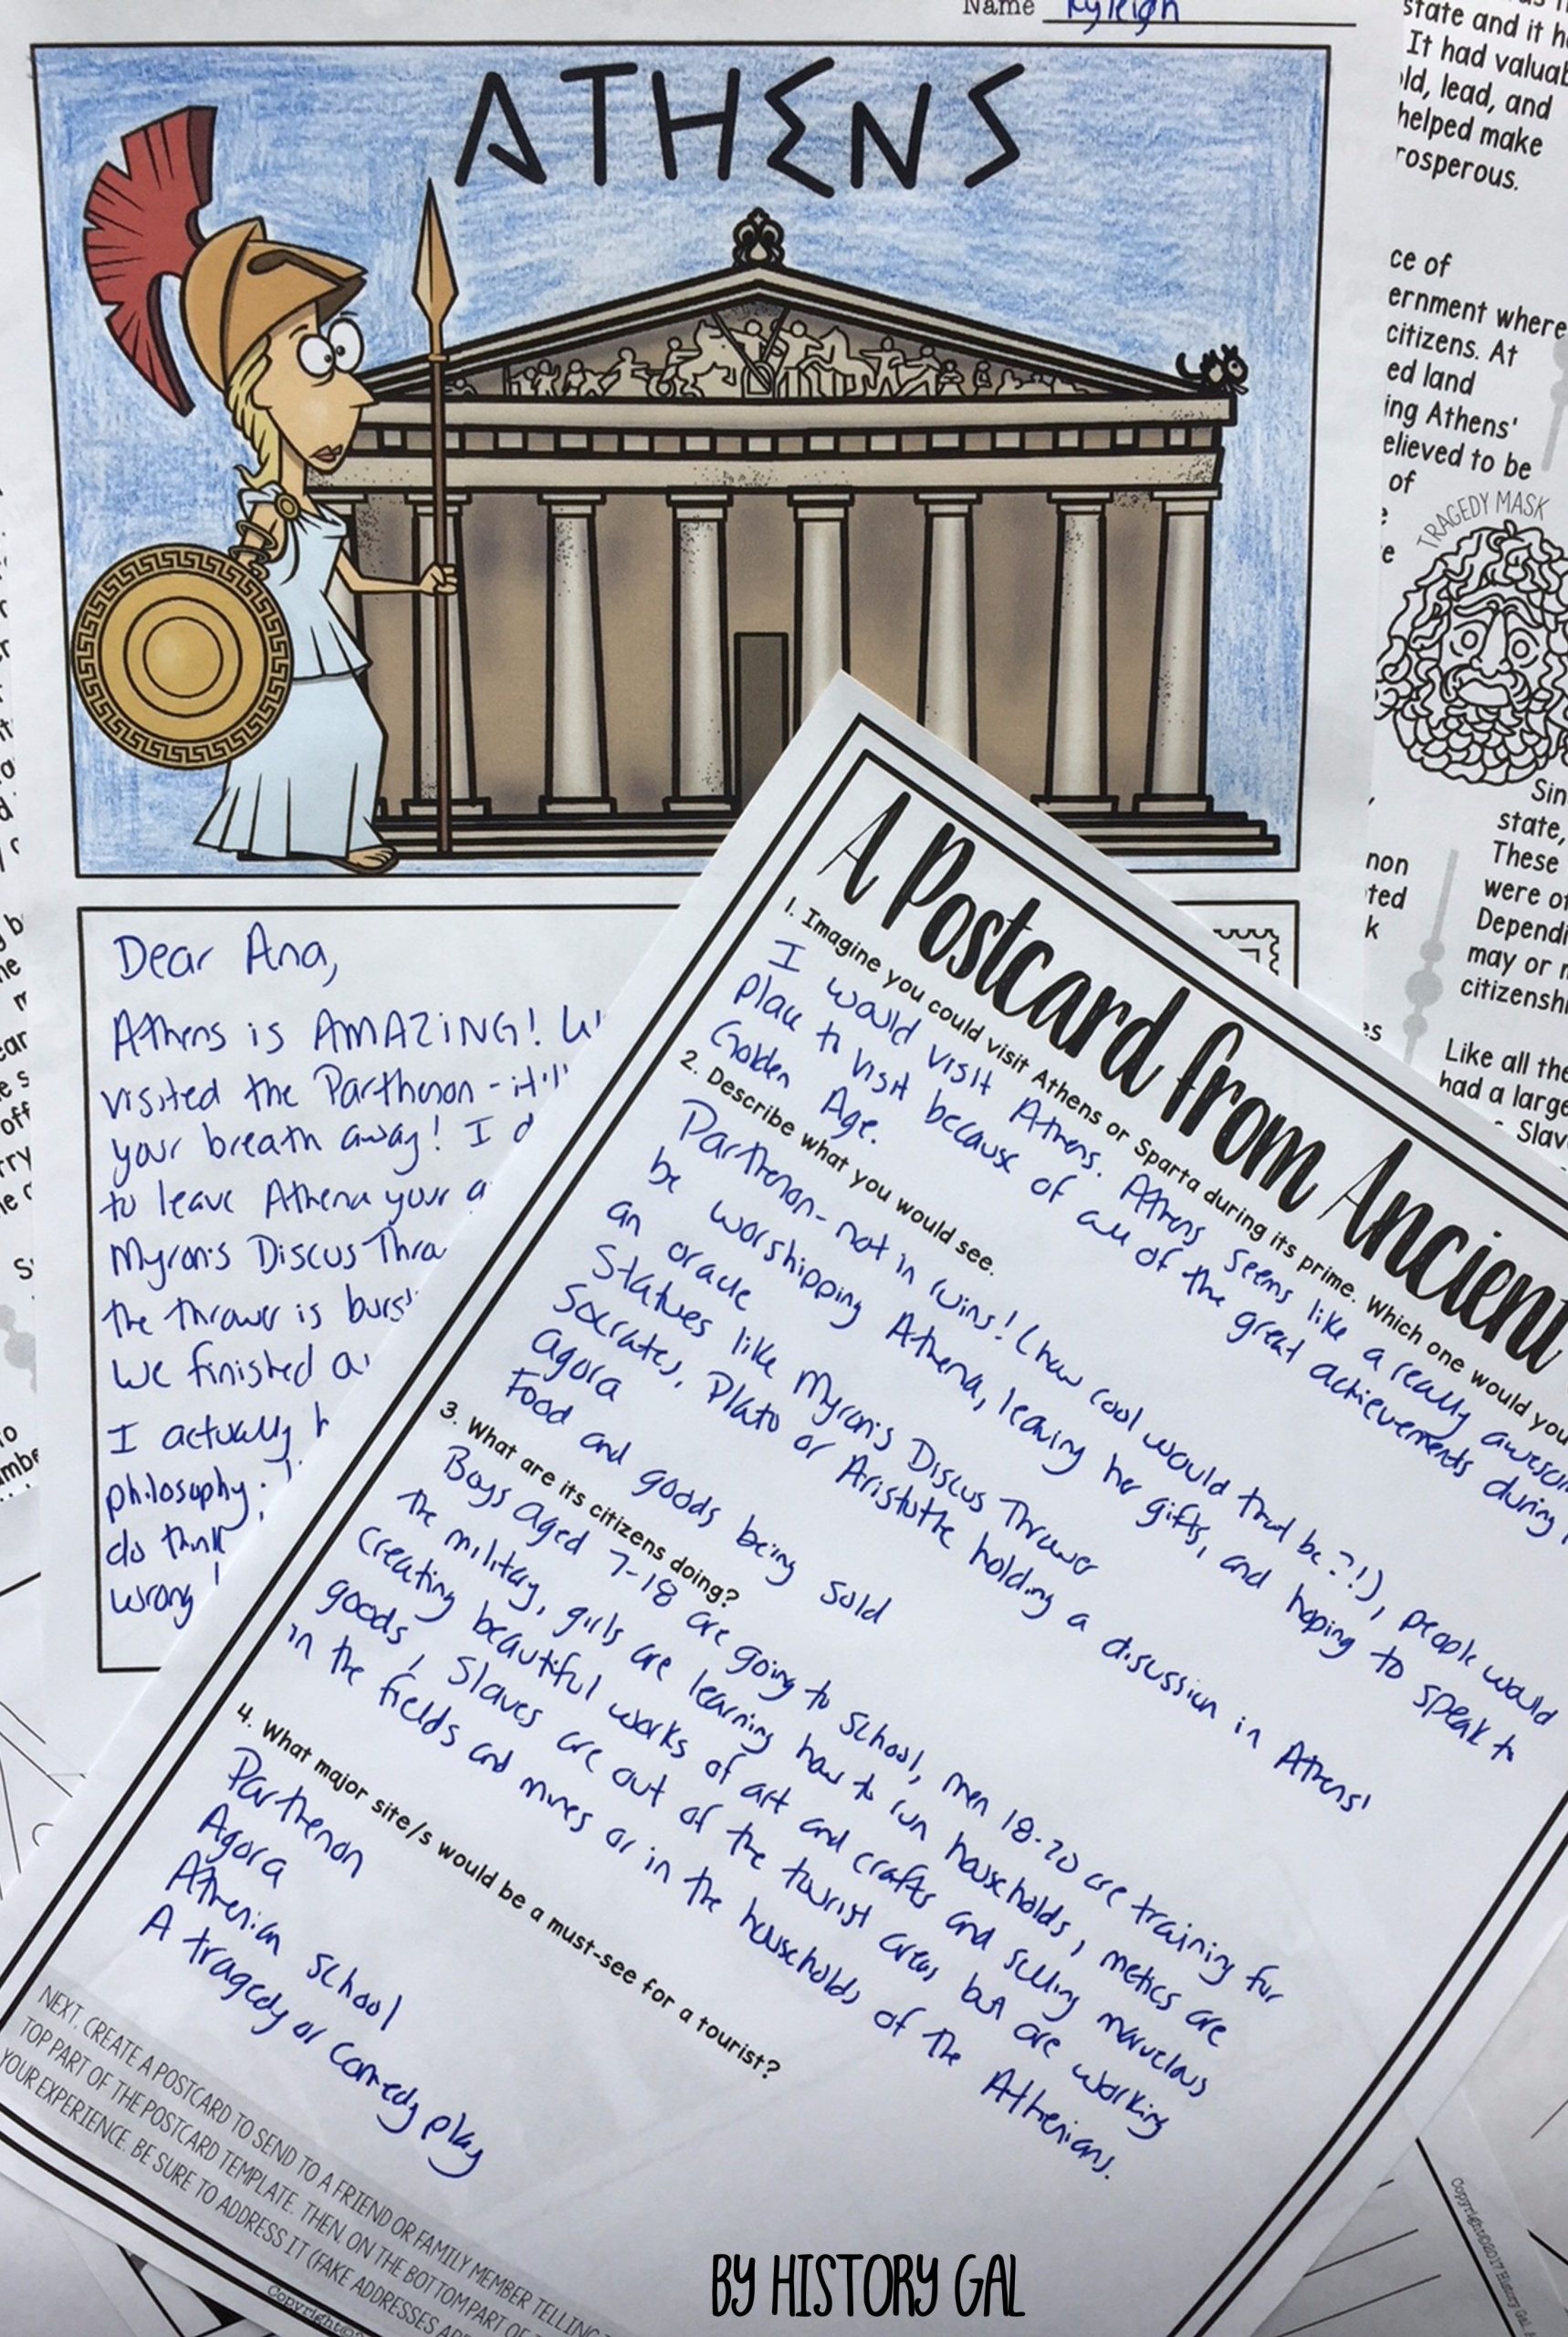 Name Kyleigh
ATHENS
Dear Ana,
Athens is AMAZING!
visited the Parthenon - it'll
your breath away! I
to leave Athena your
Myron's Discus
the thrower is
We finished
I actually
philosophy
do think
wrong!
A Postcard from Ancient
1. Imagine you could visit Athens or Sparta during its prime. Which one would you
I would visit Athens. Athens seems like a really
place to visit because of all of the great achievements during
Golden Age.
2. Describe what you would see.
Parthenon - not in ruins! (how cool would that be?!), people would
be worshipping Athena, leaving her gifts, and hoping to speak to
an oracle
Statues like Myron's Discus Thrower
Socrates, Plato or Aristotle holding a discussion in Athens'
agora
Food and goods being sold
3. What are its citizens doing?
Boys aged 7-18 are going to school, men 18-20 are training for
the military, girls are learning how to run households, metics are
creating beautiful works of art and crafts and selling marvelous
goods, Slaves are out of the tourist areas but are working
in the fields and mines or in the households of the Athenians.
4. What major site/s would be a must-see for a tourist?
Parthenon
Agora
Athenian School
A tragedy or comedy play
NEXT, CREATE A POSTCARD TO SEND TO A FRIEND OR FAMILY MEMBER TELLING
TOP PART OF THE POSTCARD TEMPLATE. THEN, ON THE BOTTOM PART OF
YOUR EXPERIENCE. BE SURE TO ADDRESS IT (FAKE ADDRESSES
state and it
It had
lead, and
helped make
ce of
where
citizens. At
ed land
ing Athens'
to be
of
TRAGEDY MASK
state,
These
were
may or
Like all the
had a large
Copyright©2017 History Gal
BY HISTORY GAL